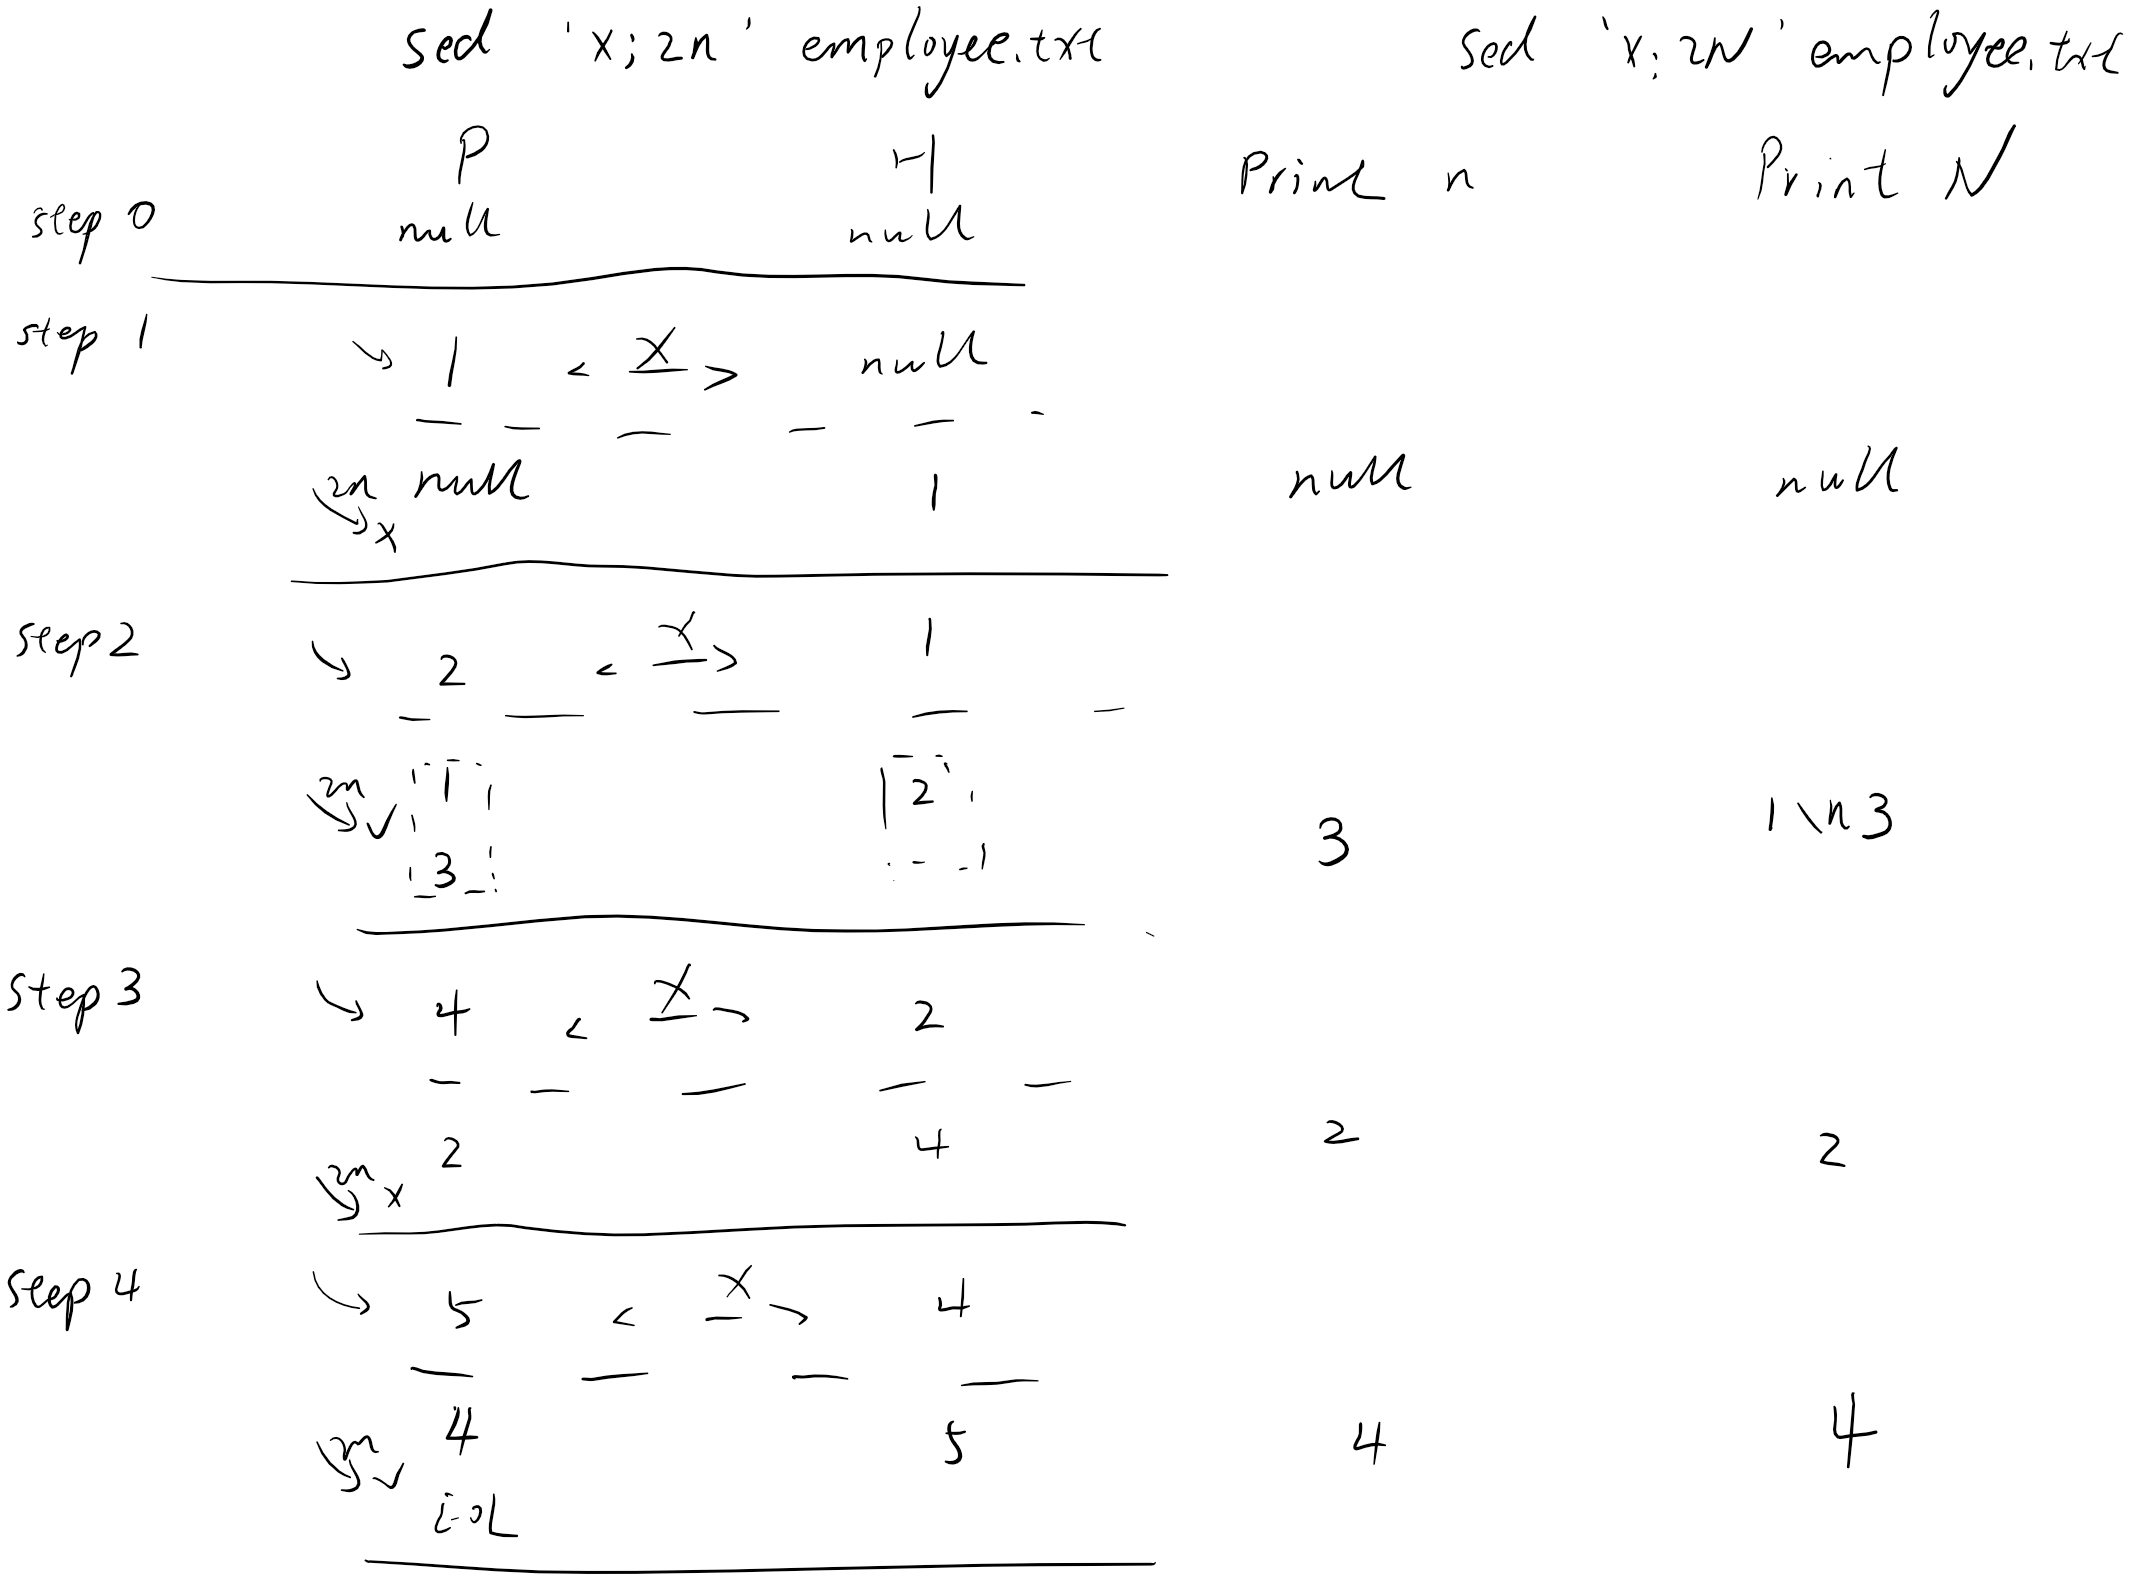 sed 'x; 2n' employee.txt sed 'x; 2N' employee.txt
P H Print n Print N
step 0 null null
step 1 1 < x > null
2n x null 1 null null
step 2 2 < x > 1
2n ✓ 1 2 3 1\n3
3
step 3 4 < x > 2
2n x 2 4 2 2
step 4 5 < x > 4
2n ✓ 4 5 4 4